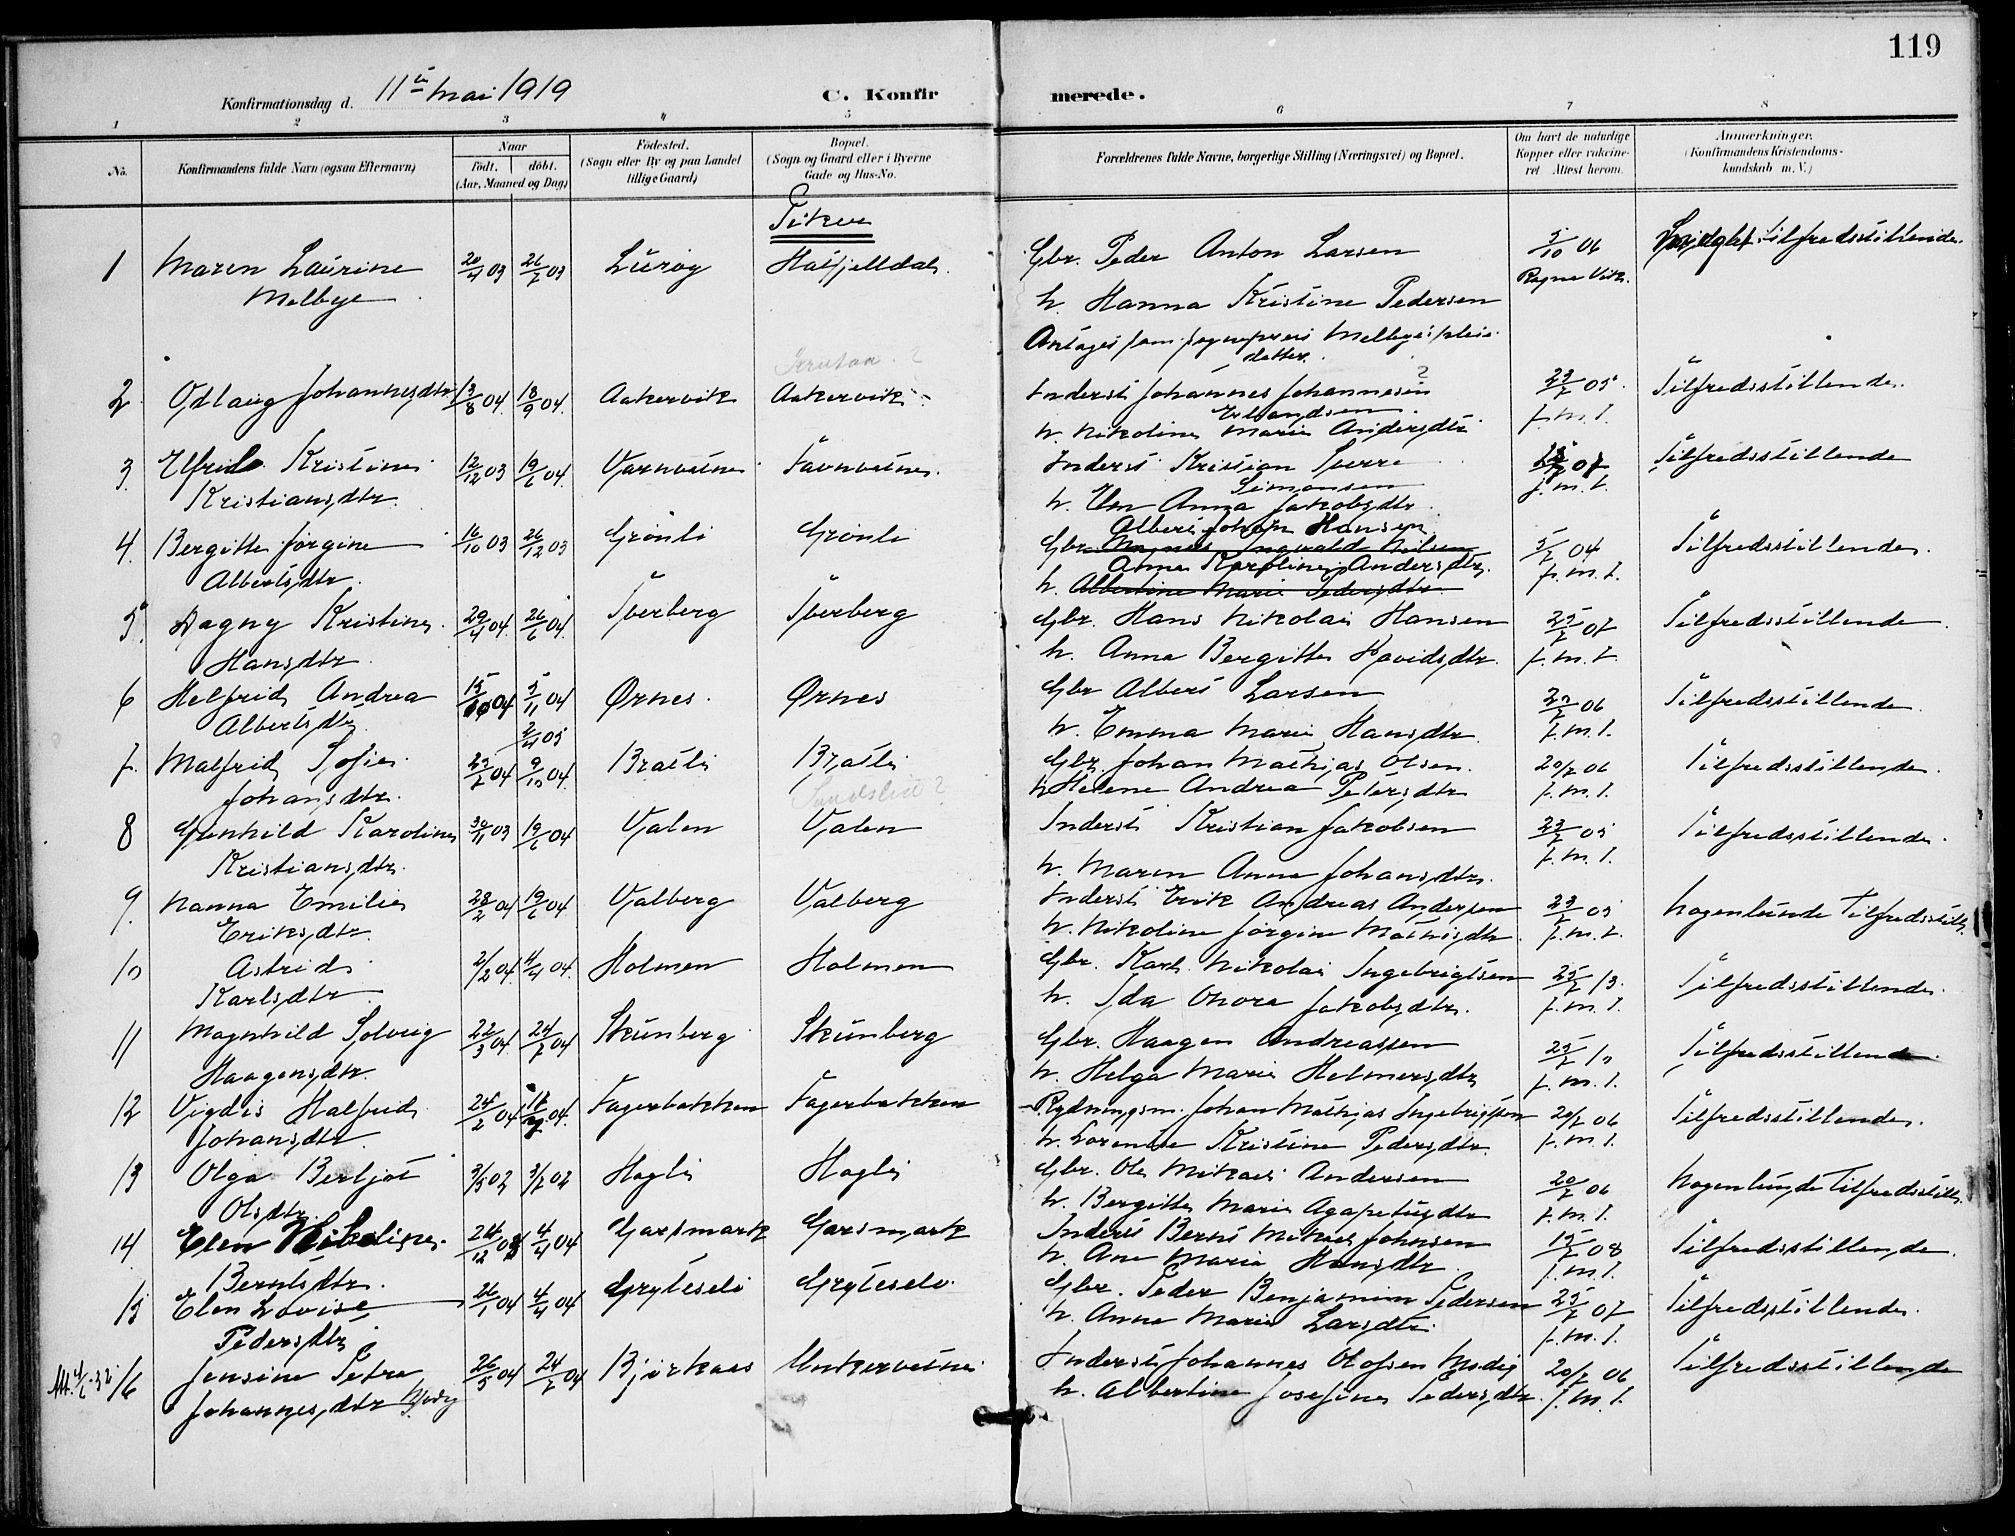 119
Konfirmationsdag d. 11te mai 1919 C. Konfirmerede.
1 2 3 4 5 6 7 8
No. Konfirmandens fulde Navn (ogsaa Efternavn) Naar Födt. döbt. (Aar, Maaned og Dag) Födested. (Sogn eller By og paa Landet tillige Gaard) Bopæl. (Sogn og Gaard eller i Byerne Gade og Hus-No. Forældrenes fulde Navne, borgerlige Stilling (Næringsvei) og Bopæl. Om havt de naturlige Kopper eller vakcineret Attest herom. Anmærkninger. (Konfirmandens Kristendomskundskab m. V.)
Piker
1 Maren Laurine 20/4 03 26/7 03 Lurøy Hatfjelldal. Gbr. Peder Anton Larsen 5/10 06 tilfredsstillende.
Melbye h. Hanna Kristine Pedersen Ragna Vik.
Antages som sogneprest Melbyes pleiedatter.
2 Odlaug Johannesdtr 13/8 04 18/9 04. Aakervik Aakervik Inderst Johannes Johannesen ? 23/7 05 Tilfredsstillende.
Erlandsen
h. Nikoline Marie Andersdtr f.m.t.
3. Elfrid Kristine 12/12 03 19/6 04. Varnvatne Favnvatne. Inderst Kristian Sverre 07 Tilfredsstillende
Kristiansdtr. Simonsen f.m.t.
h. Elen Anna Jakobsdtr.
4. Bergitte Jørgine 16/10 03 26/12 03 Grønli Grønli Albert Johan Hansen
Gbr. Magnus Ingvald Nilsen 5/7 04 Tilfredsstillende.
Albertsdtr. Anna Karoline Andersdtr. f.m.t.
h. Albertine Marie Pedersdtr.
5. Dagny Kristine 29/4 04. 26/6 04. Sverberg Sverberg Gbr. Hans Nikolai Hansen 25/7 07 Tilfredsstillende
Hansdtr. h. Anna Bergitte Davidsdtr. f.m.t.
6 Helfrid Andrea 15/ 04 5/11 04 Ørnes. Ørnes Gbr Albert Larsen 27/7 06 Tilfredsstillende.
Albertsdtr. h. Emma Marie Hansdtr. f.m.t.
2/4 05
7. Malfrid Sofie 29/7 04 9/10 04. Bratli Bratli Gbr. Johan Mathias Olsen. 20/7 06 Tilfredsstillende.
Johansdtr. h Helene Andrea Petersdtr f.m.t.
8 Gunhild Karoline 30/11 03 19/6 04 Valen Valen Inderst Kristian Jakobsen 23/7 05 Tilfredsstillende.
Kristiansdtr. h. Maren Anna Johansdtr. f.m.t.
9. Nanna Emilie 28/2 04 19/6 04 Valberg Valberg Inderst Erik Andreas Andersen 23/7 05 nogenlunde Tilfredsstill.
Eriksdtr. h. Nikoline Jørgine Mathisdtr. f.m.t.
10 Astrid 2/2 04. 4/4 04. Holmen Holmen Gbr. Karl Nikolai Ingebrigtsen 25/7 13. Tilfredsstillende.
Karlsdtr. h. Ida Onora Jakobsdtr. f.m.t.
11 Magnhild Solveig 22/3 04. 24/7 04 Skunberg Skunberg Gbr. Haagen Andreassen 25/7 10 Tilfredsstillende.
Haagensdtr. h. Helga Marie Helmersdtr f.m.t.
12 Vigdis Halfrid 25/2 04 04. Fagerbakken Fagerbakken Rydningsm. Johan Mathias Ingebrigtsen 20/7 06 Tilfredsstillende.
Johansdtr. h. Lorentse Kristine Pedersdtr. f.m.t.
13 Olga Berljot 3/5 02 3/7 02 Hagli Hagli Gbr. Ole Mikael Andersen 20/7 06 nogenlunde Tilfredsstill.
Olsdtr. h. Bergitte Marie Agapetusdtr f.m.t.
14 Elen Nikoline 24/12 03 4/4 04 Garsmark Garsmark Inderst Bernt Mikael Johnsen 15/7 08 Tilfredsstillende.
Berntsdtr. h. Ane Maria Hansdtr. f.m.t.
15 Elen Lovise 26/1 04 4/4 04 Grytesele Grytesele Gbr. Peder Benjamin Pedersen 25/7 07 Tilfredsstillende.
Pedersdtr. h. Anna Marie Larsdtr. f.m.t.
Att. 4/1-32 16 Jensine Petra 26/5 04 24/7 04 Bjørkaas Unkervatne Inderst Johannes Olofsen Modig 20/7 06 Tilfredsstillende
Johannesdtr Modig h. Albertine Josefine Pedersdtr. f.m.t.